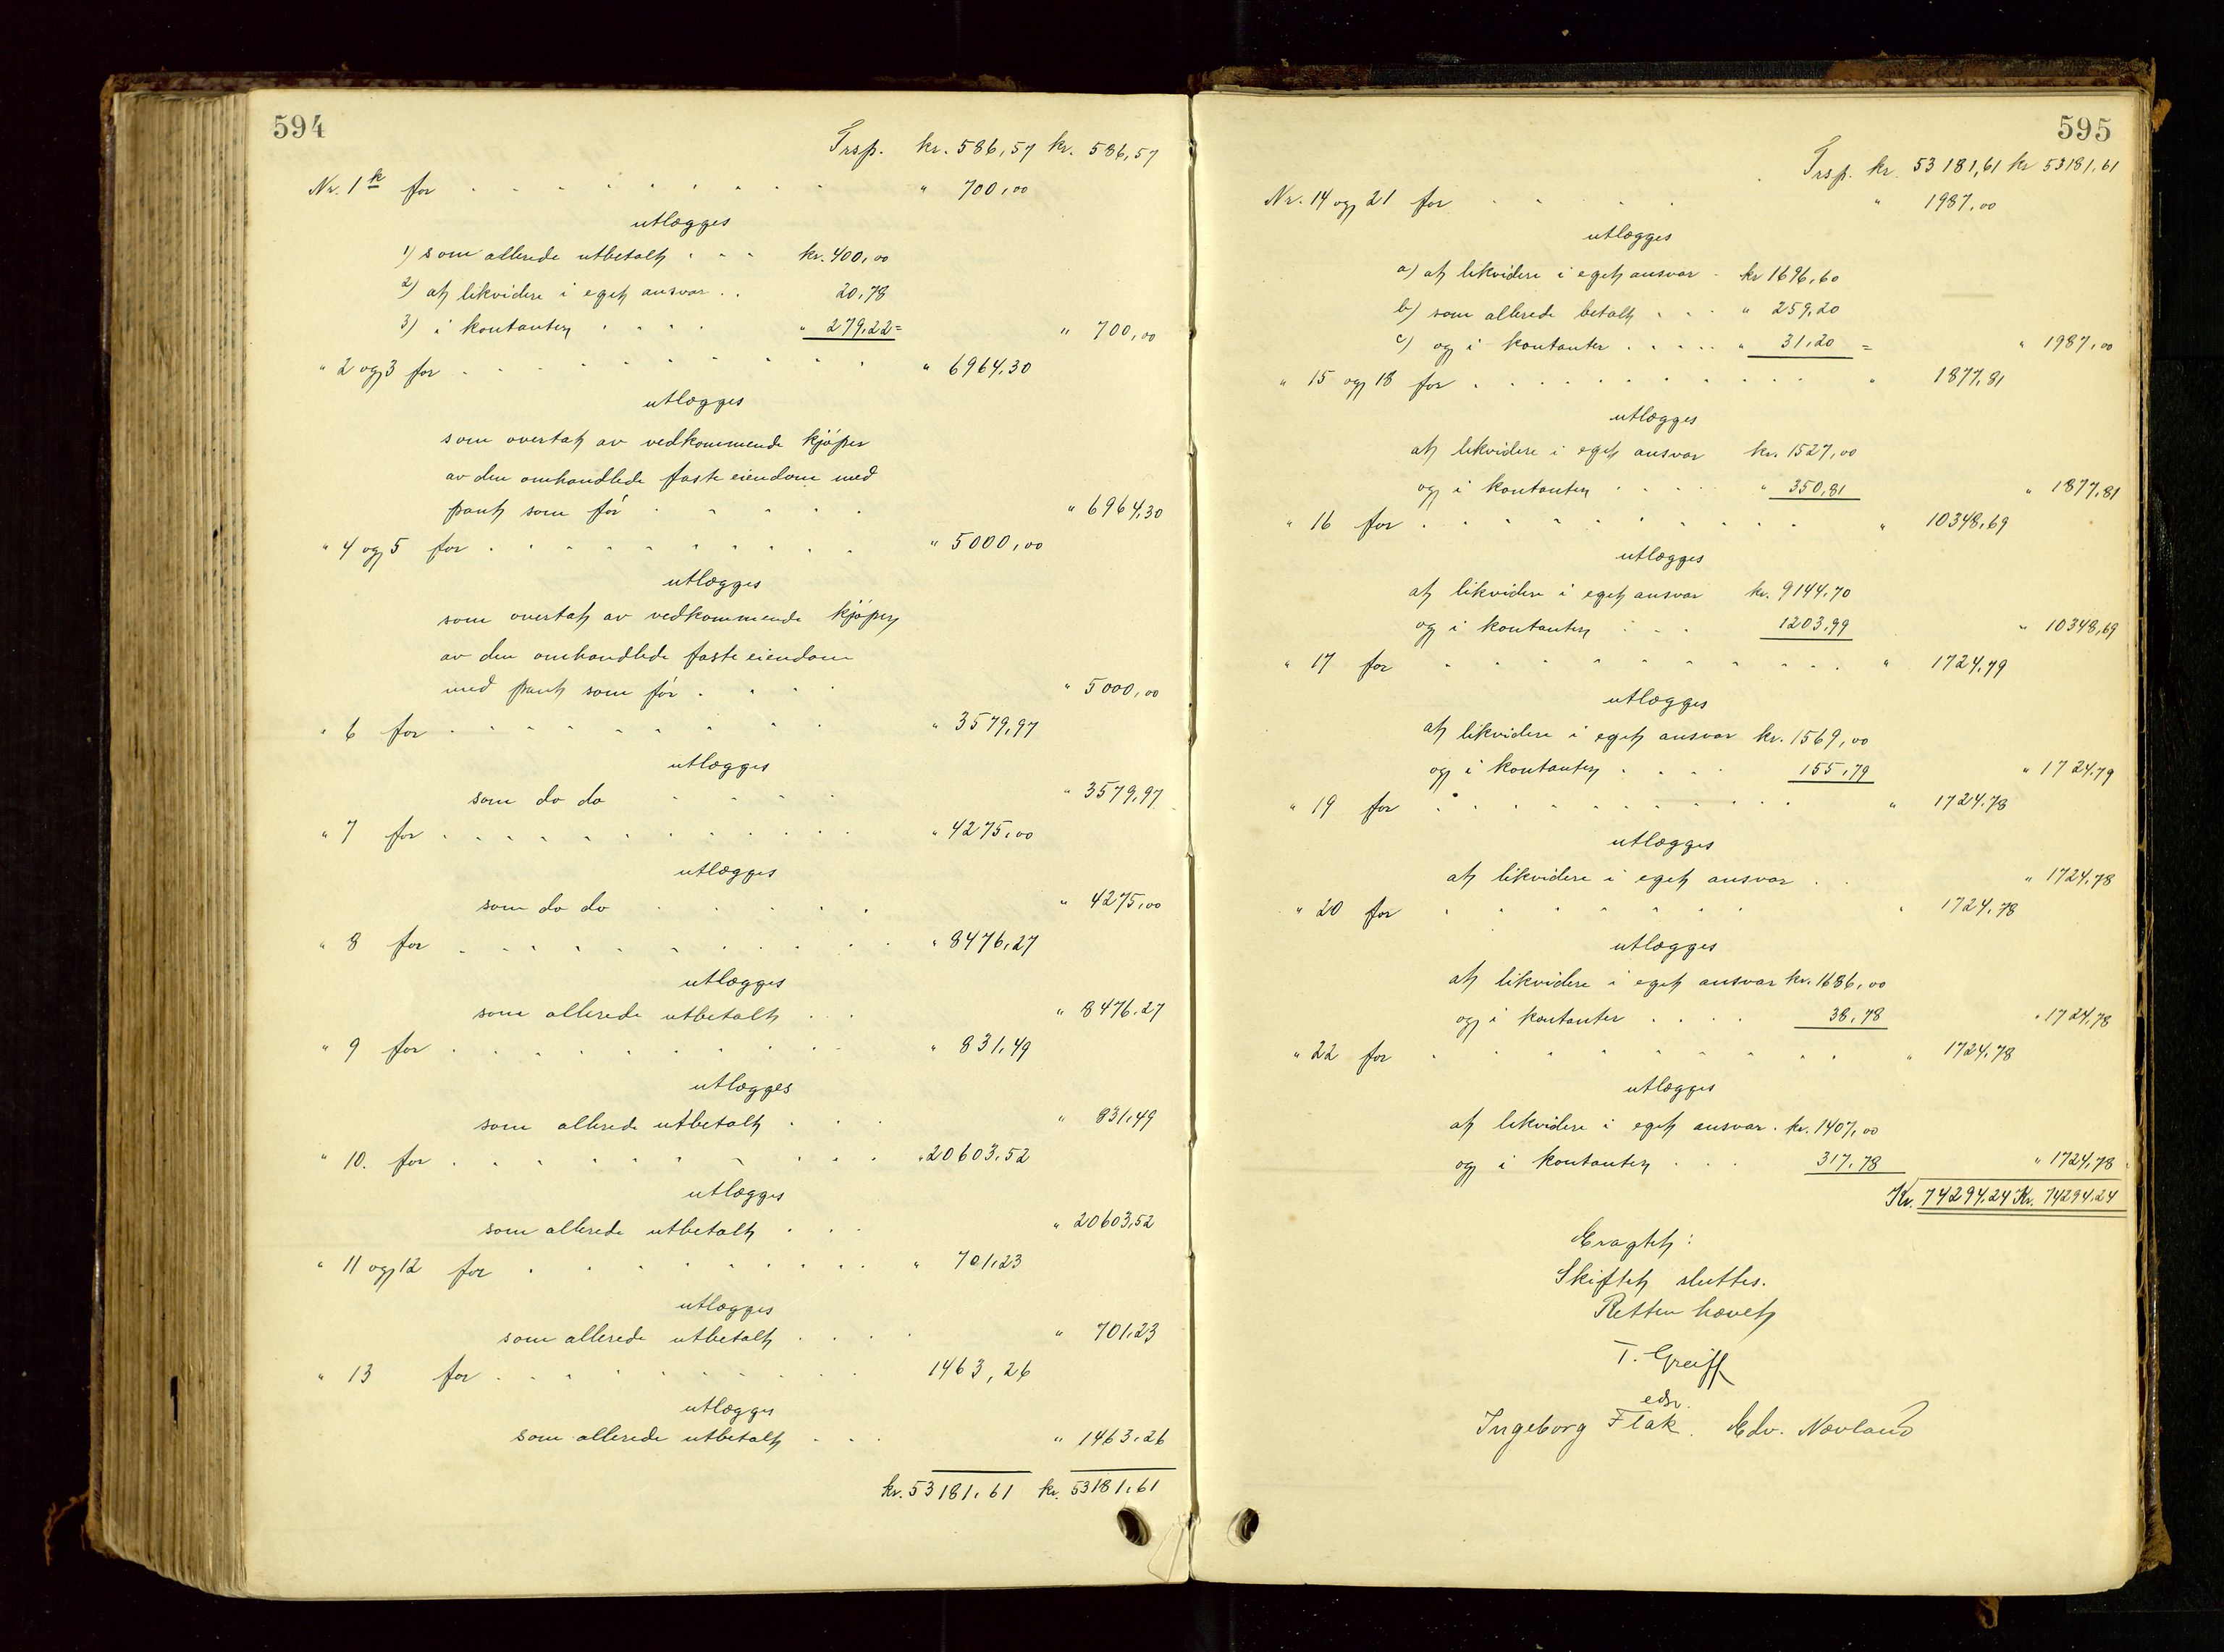 594
Trsp. kr. 586,57 kr. 586,57
Nr. 1k for " 700,00
utlægges
1) som allerede utbetalt kr. 400,00
2) at likvidere i eget ansvar 20,78
3) i kontanter " 279,22 = " 700,00
" 2 og 3 for " 6964,30
utlægges
som overtat av vedkommende kjøper
av den omhandlede faste eiendom med
pant som før " 6964,30
" 4 og 5 for " 5000,00
utlægges
som overtat av vedkommende kjøper
av den omhandlede faste eiendom
med pant som før " 5000,00
" 6 for " 3579,97
utlægges
som do do " 3579,97
" 7 for " 4275,00
utlægges
som do do " 4275,00
" 8 for " 8476,27
utlægges
som allerede utbetalt " 8476,27
" 9 for " 831,49
utlægges
som allerede utbetalt " 831,49
" 10. for " 20603,52
utlægges
som allerede utbetalt " 20603,52
" 11 og 12 for " 701,23
utlægges
som allerede utbetalt " 701,23
" 13 for 1463,26
utlægges
som allerede utbetalt " 1463,26
kr. 53181,61 kr. 53181,61
595
Trsp. kr. 53181,61 kr 53181,61
Nr. 14 og 21 for " 1987,00
utlægges
a) at likvidere i eget ansvar kr 1696,60
b) som allerede betalt " 259,20
c) og i kontanter " 31,20 = " 1987,00
" 15 og 18 for " 1877,81
utlægges
at likvidere i eget ansvar kr. 1527,00
og i kontanter " 350,81 " 1877,81
" 16 for " 10348,69
utlægges
at likvidere i eget ansvar kr. 9144,70
og i kontanter 1203,99 " 10348,69
" 17 for " 1724,79
utlægges
at likvidere i eget ansvar kr. 1569,00
og i kontanter 155,79 " 1724,79
" 19 for " 1724,78
utlægges
at likvidere i eget ansvar " 1724,78
" 20 for " 1724,78
utlægges
at likvidere i eget ansvar kr. 1686,00
og i kontanter 38,78 " 1724,78
" 22 for " 1724,78
utlægges
at likvidere i eget ansvar. kr. 1407,00
og i kontanter 317,78 " 1724,78
Kr. 74294,24 Kr. 74294,24
Eragtet:
Skiftet sluttes.
Retten hævet
T. Greiff
edsv.
Ingeborg Flak. Edv. Nævland